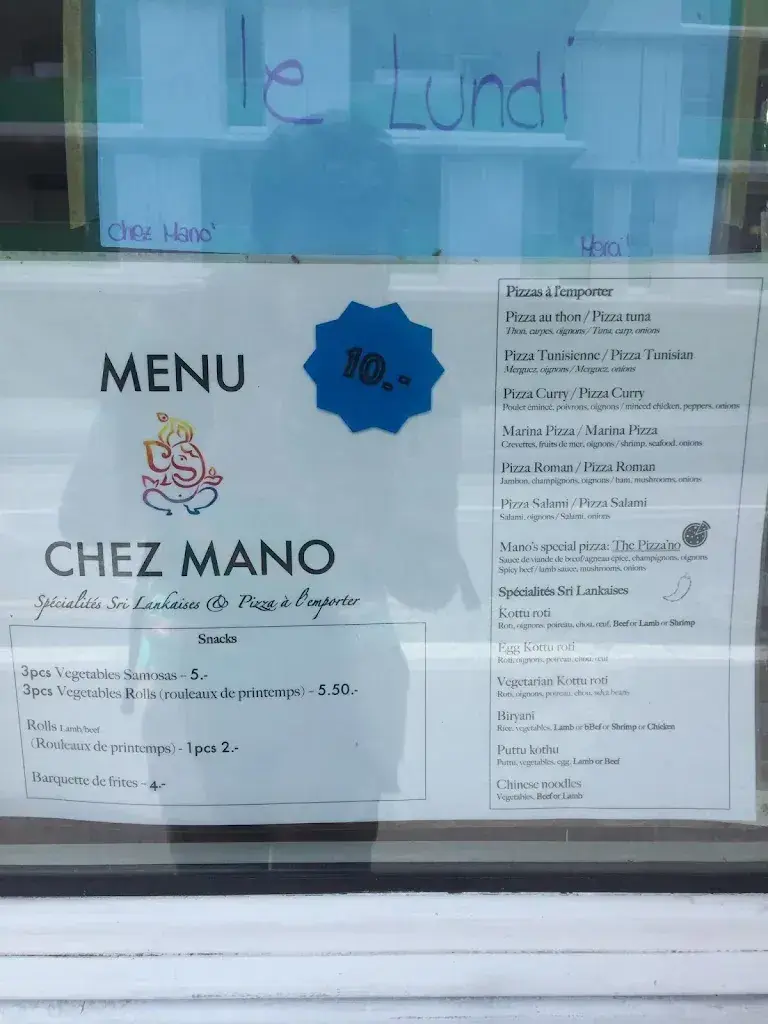 le Lundi
Chez Mano
Merci!
MENU
10.-
CHEZ MANO
Spécialités Sri Lankaises & Pizza à l'emporter
Snacks
3pcs Vegetables Samosas - 5.-
3pcs Vegetables Rolls (rouleaux de printemps) - 5.50.-
Rolls Lamb/beef
(Rouleaux de printemps) - 1pcs 2.-
Barquette de frites - 4.-
Pizzas à l'emporter
Pizza au thon / Pizza tuna
Thon, carpes, oignons / Tuna, carp, onions
Pizza Tunisienne / Pizza Tunisian
Merguez, oignons / Merguez, onions
Pizza Curry / Pizza Curry
Poulet émincé, poivrons, oignons / minced chicken, peppers, onions
Marina Pizza / Marina Pizza
Crevettes, fruits de mer, oignons / shrimp, seafood, onions
Pizza Roman / Pizza Roman
Jambon, champignons, oignons / ham, mushrooms, onions
Pizza Salami / Pizza Salami
Salami, oignons / Salami, onions
Mano's special pizza: The Pizza'no
Sauce de viande de boeuf/agneau épicé, champignons, oignons
Spicy beef / lamb sauce, mushrooms, onions
Spécialités Sri Lankaises
Kottu roti
Roti, oignons, poireau, chou, œuf, Beef or Lamb or Shrimp
Egg Kottu roti
Roti, oignons, poireau, chou, œuf
Vegetarian Kottu roti
Roti, oignons, poireau, chou, soya beans
Biryani
Rice, vegetables, Lamb or bBef or Shrimp or Chicken
Puttu kothu
Puttu, vegetables, egg, Lamb or Beef
Chinese noodles
Vegetables, Beef or Lamb